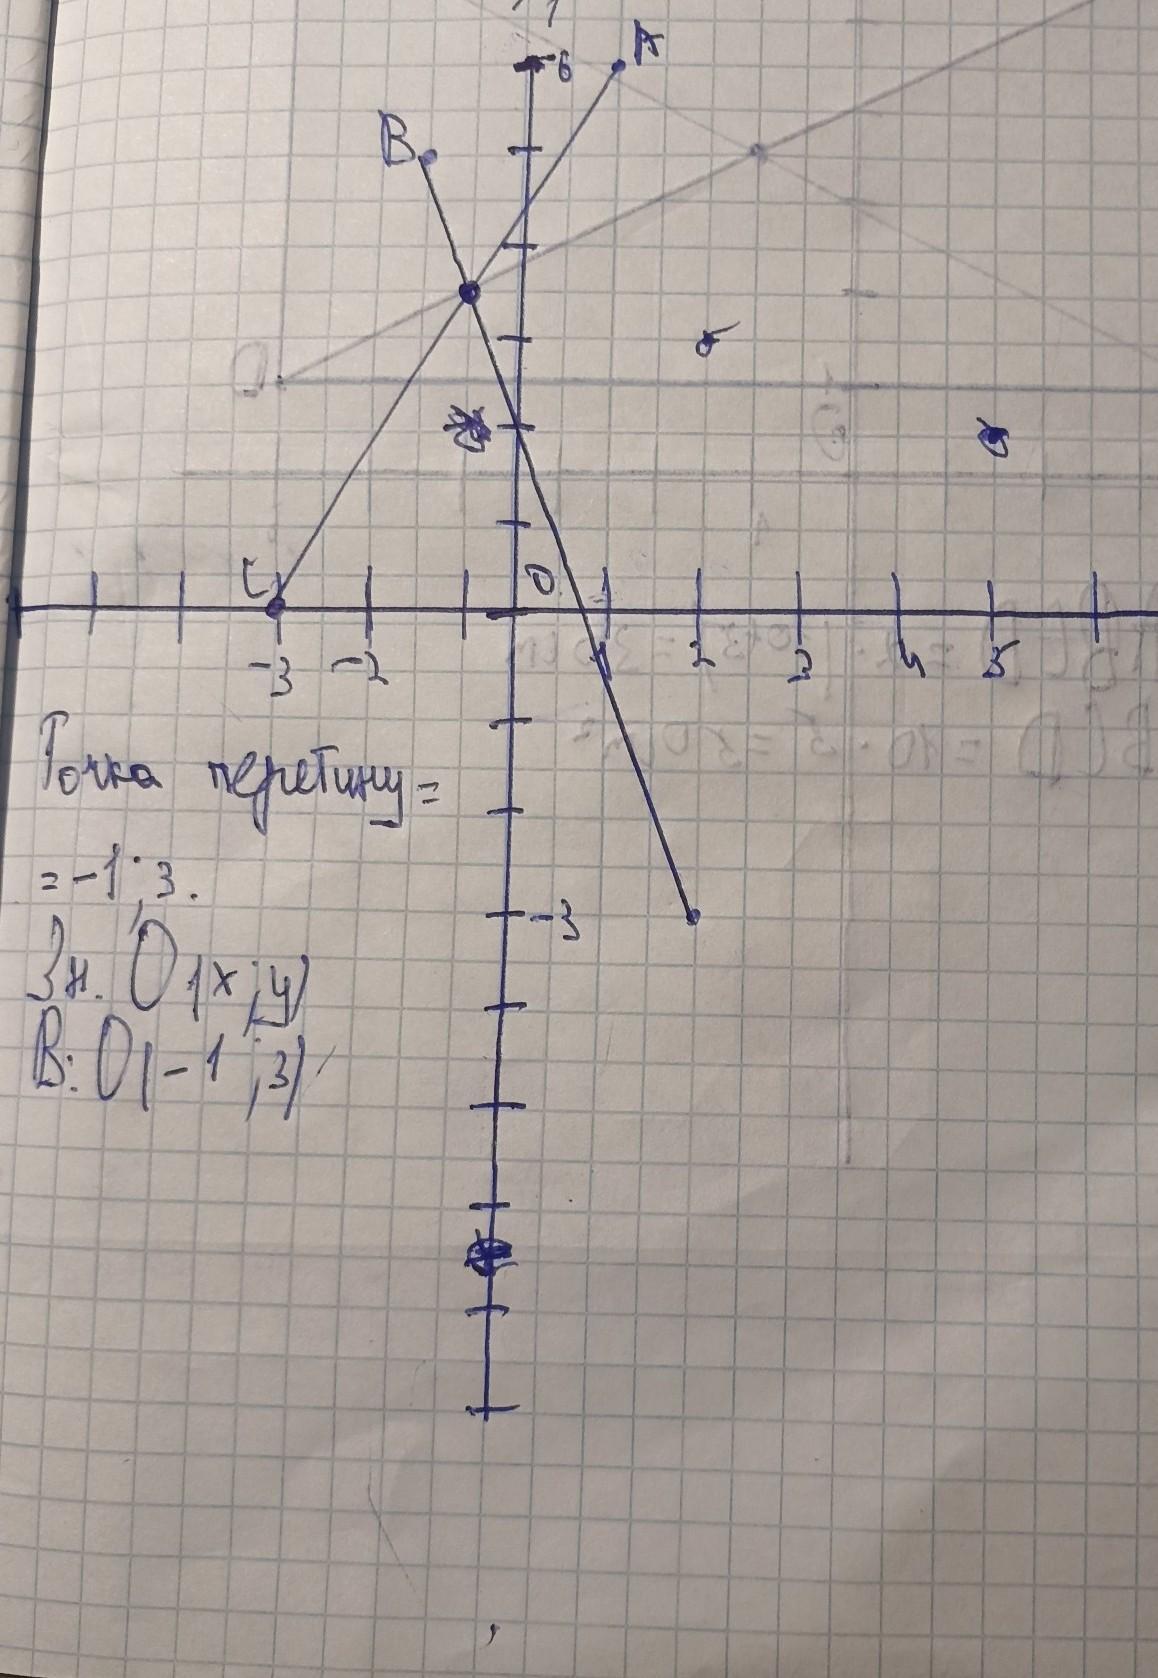 6
A
B
C
O
-3 -2 1 2 3 4 5
Точка перетину=
=-1;3.
-3
Зн. O(x;y)
B: O(-1;3)